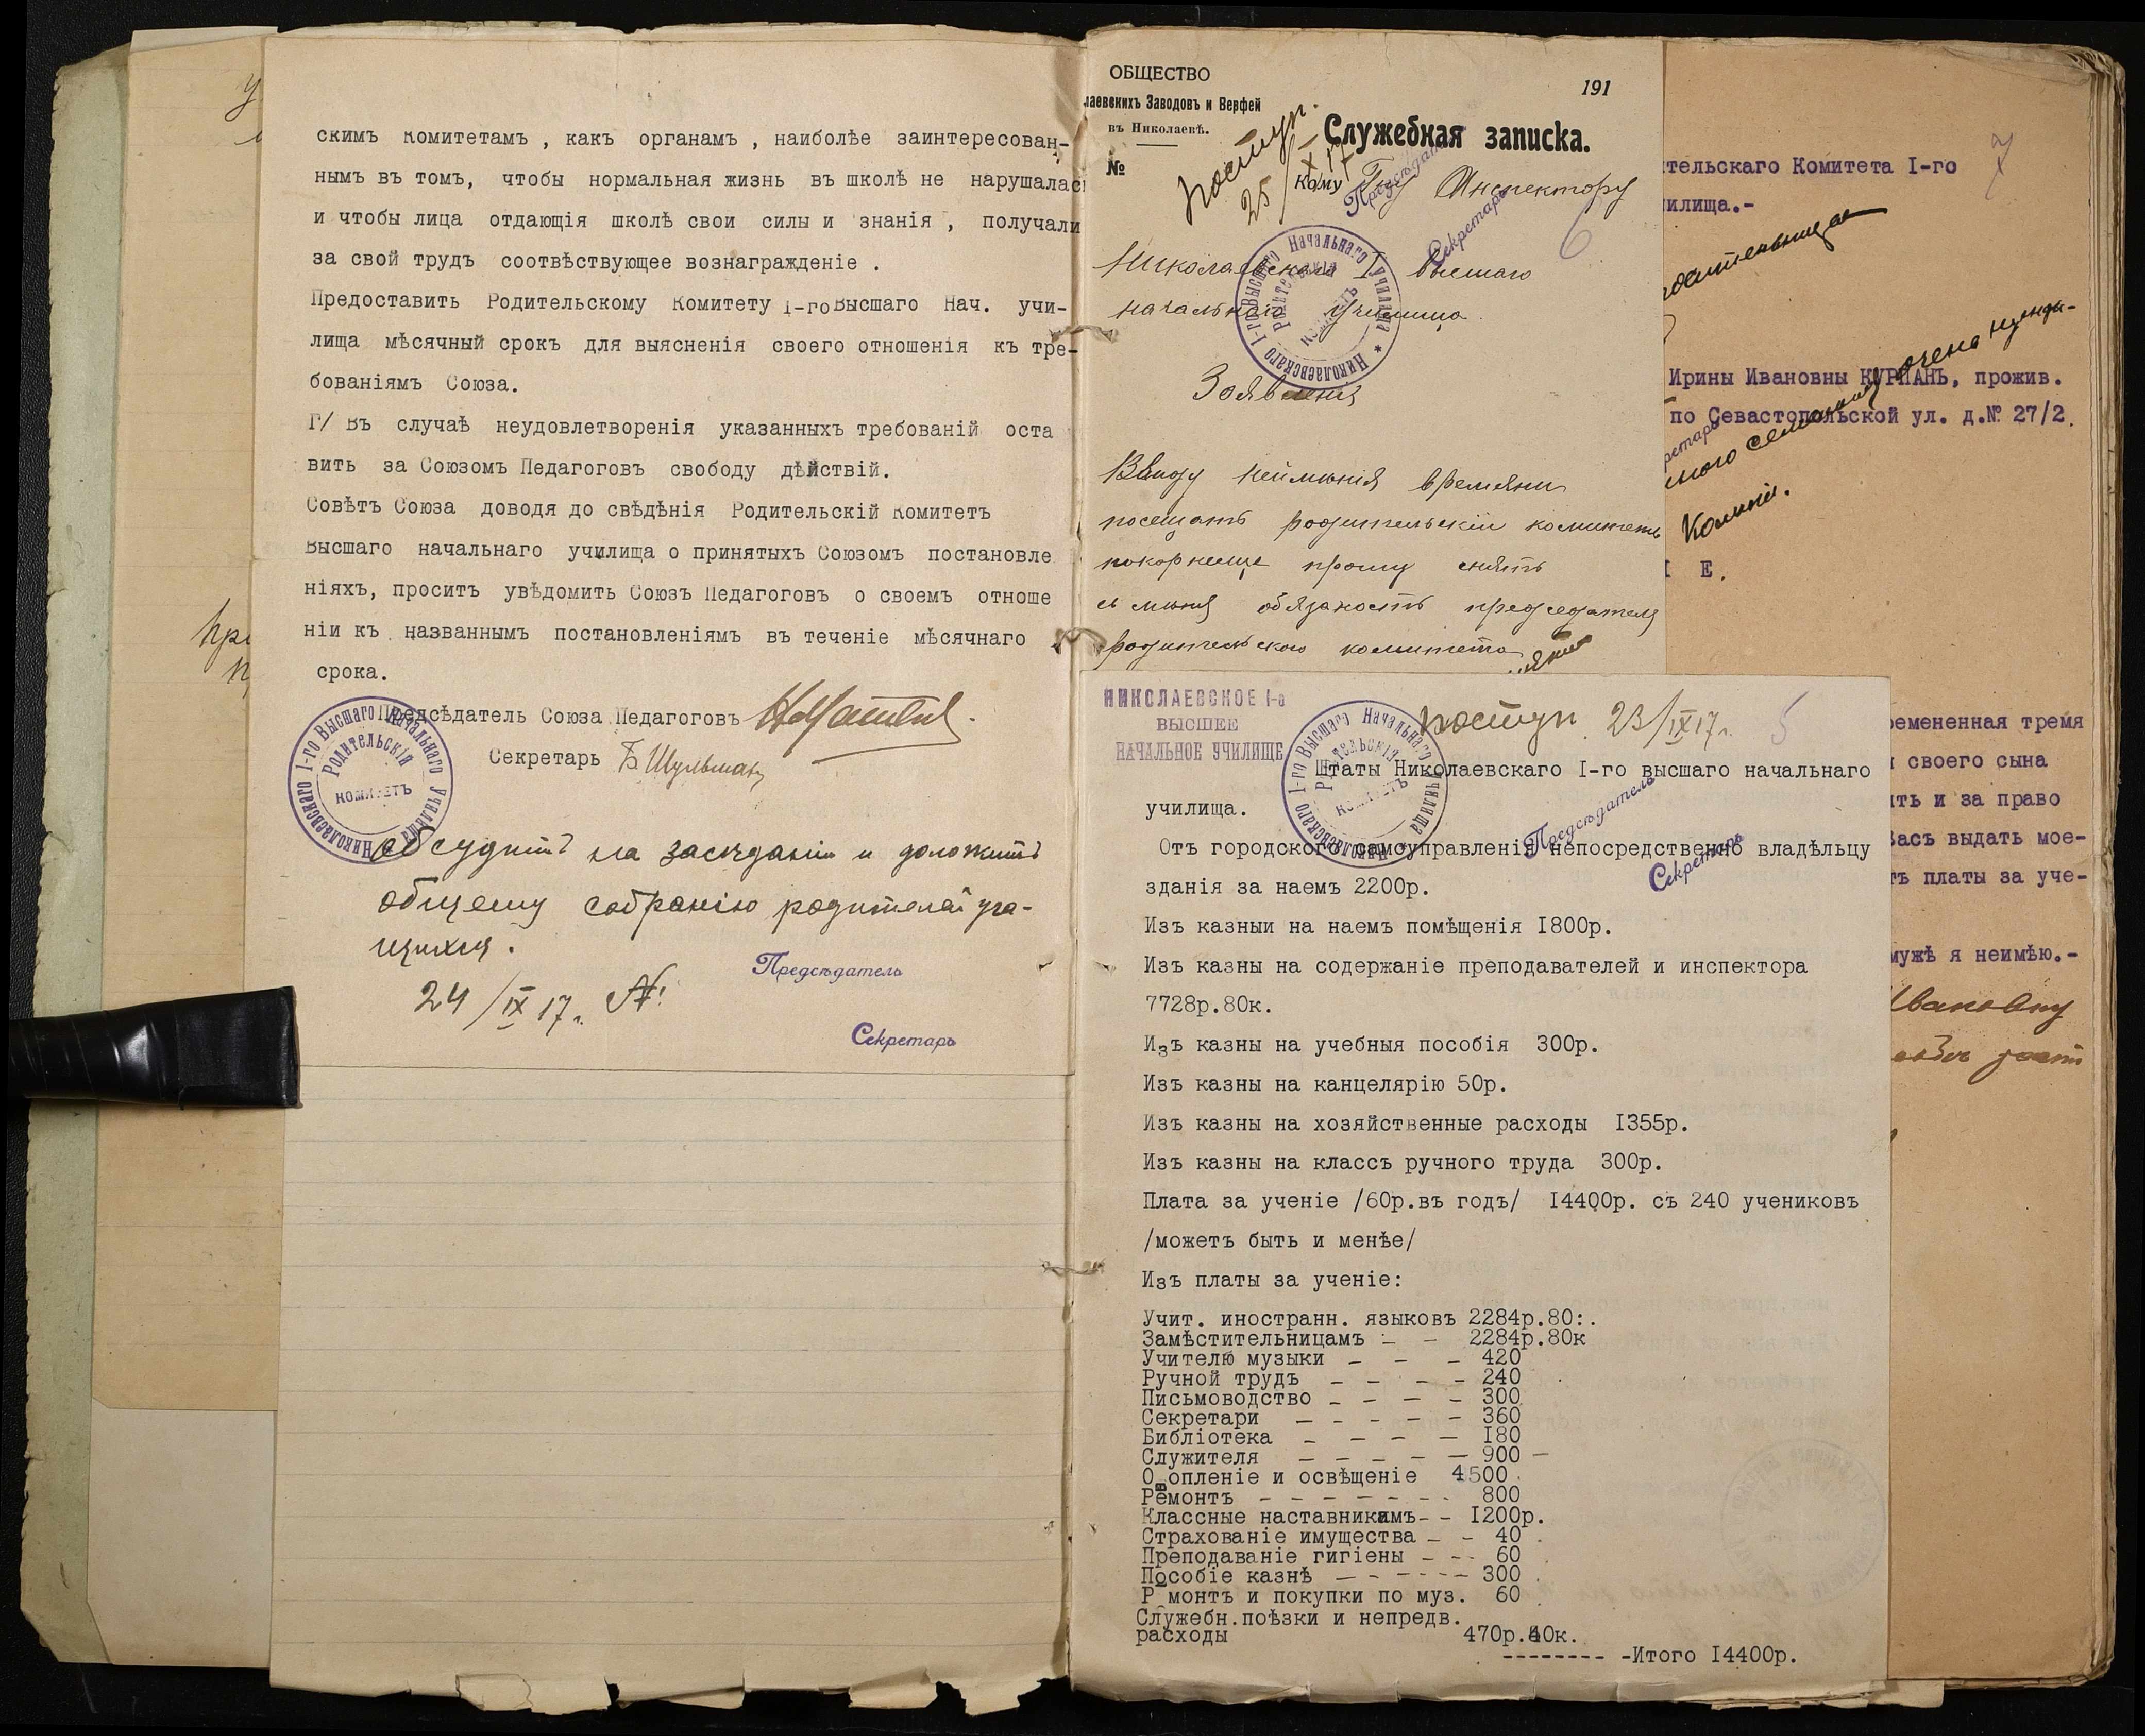 скимъ Комитетамъ , какъ органамъ , наиболѣе заинтересован-
нымъ въ томъ, чтобы нормальная жизнь въ школѣ не нарушалась
и чтобы лица отдающія школѣ свои силы и знанія , получали
за свой трудъ соотвѣствующее вознагражденіе .
Предоставить Родительскому Комитету I-го Высшаго Нач. учи-
лища мѣсячный срокъ для выясненія своего отношенія къ тре-
бованіямъ Союза.
Г/ Въ случаѣ неудовлетворенія указанныхъ требованій оста
вить за Союзомъ Педагоговъ свободу дѣйствій.
Совѣтъ Союза доводя до свѣдѣнія Родительскій Комитетъ
Высшаго начальнаго училища о принятыхъ Союзомъ постановле
ніяхъ, проситъ увѣдомить Союзъ Педагоговъ о своемъ отноше
ніи къ названнымъ постановленіямъ въ теченіе мѣсячнаго
срока.
Предсѣдатель Союза Педагоговъ
Секретарь Б Шульман
Николаевскаго I-го Высшаго Начальнаго Училища
Родительскій
Комитетъ
Обсудить на засѣданіи и доложить
общему собранію родителей уча-
щихся.
24/IX 17 г.
Предсѣдатель
Секретарь
ОБЩЕСТВО
лаевскихъ Заводовъ и Верфей
въ Николаевѣ.
№
191
Служебная записка.
Поступ.
25/IX 17
Кому Гну Инспектору
Предсѣдатель
Секретарь
6
Николаевскаго I высшаго
начальнаго училища
Николаевскаго I-го Высшаго Начальнаго Училища *
Родительскій
Комитетъ
Заявленія
Ввиду неимѣнія времяни
посещать родительскій комитетъ
покорнеще прошу снять
съ мѣня обязаность председателя
родительского комитета
НИКОЛАЕВСКОЕ I-е
ВЫСШЕЕ
НАЧАЛЬНОЕ УЧИЛИЩЕ
Николаевскаго I-го Высшаго Начальнаго Училища
Родительскій
Комитетъ
Поступ. 23/IX 17 г.
5
Штаты Николаевскаго I-го высшаго начальнаго
училища.
Предсѣдатель
Секретарь
Отъ городского самоуправленія непосредственно владѣльцу
зданія за наемъ 2200р.
Изъ казныи на наемъ помѣщенія I800р.
Изъ казны на содержаніе преподавателей и инспектора
7728р.80к.
Изъ казны на учебныя пособія 300р.
Изъ казны на канцелярію 50р.
Изъ казны на хозяйственные расходы I355р.
Изъ казны на классъ ручного труда 300р.
Плата за ученіе /60р.въ годъ/ I4400р. съ 240 учениковъ
/можетъ быть и менѣе/
Изъ платы за ученіе:
Учит. иностранн. языковъ 2284р.80:.
Замѣстительницамъ - - 2284р.80к
Учителю музыки - - - 420
Ручной трудъ - - - - 240
Письмоводство - - - - 300
Секретари - - - - - 360
Библіотека - - - - I80
Служителя - - - - - 900 -
О опленіе и освѣщеніе 4500
Ремонтъ - - - - - - - 800
Классные наставникамъ- - I200р.
Страхованіе имущества - - 40
Преподаваніе гигіены - -- 60
Пособіе казнѣ - - - - - - 300
Р монтъ и покупки по муз. 60
Служебн.поѣзки и непредв.
расходы 470р.40к.
-------- -Итого I4400р.
7
тельскаго Комитета I-го
илища.-
Ирины Ивановны КУРПАНЪ, прожив.
по Севастопольской ул. д.№ 27/2.
Е.
ремененная тремя
своего сына
ть и за право
Васъ выдать мое-
тъ платы за уче-
мужѣ я неимѣю.-